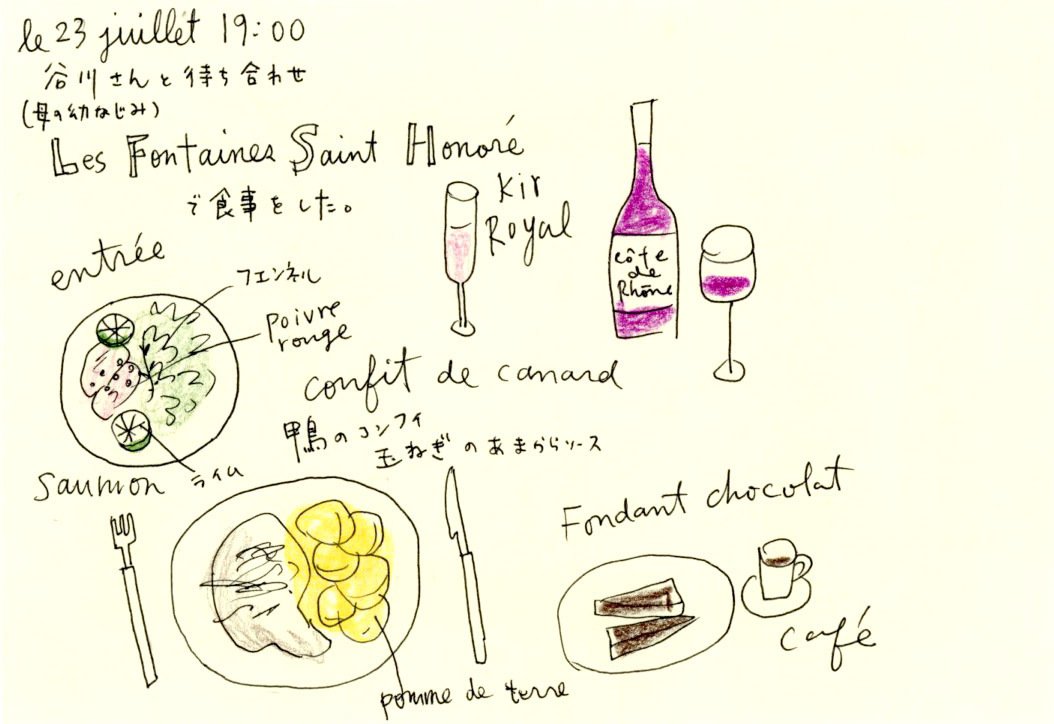 le 23 juillet 19:00
谷川さんと待ち合わせ
(母の幼なじみ)
Les Fontaines Saint Honoré
で食事をした。
Kir
Royal
côte
de
Rhône
entrée
フェンネル
poivre
rouge
ライム
saumon
confit de canard
鴨のコンフィ
玉ねぎのあまからソース
pomme de terre
Fondant chocolat
café